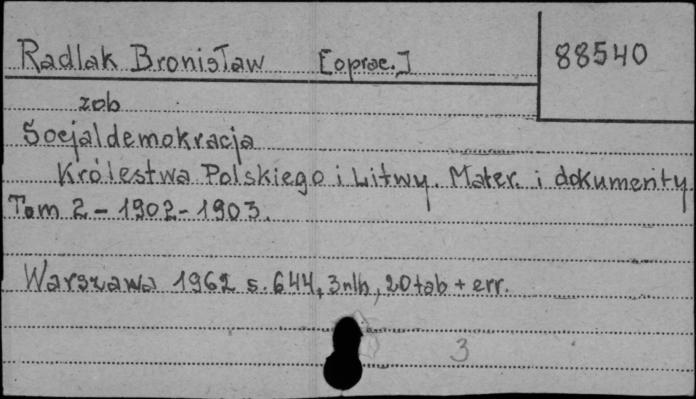 Radlak Bronisław [oprac.] 88540
zob
Socjaldemokracja
Królestwa Polskiego i Litwy. Mater. i dokumenty
Tom 2 - 1902 - 1903.
Warszawa 1962 s. 644, 3nlb, 20tab + err.
3